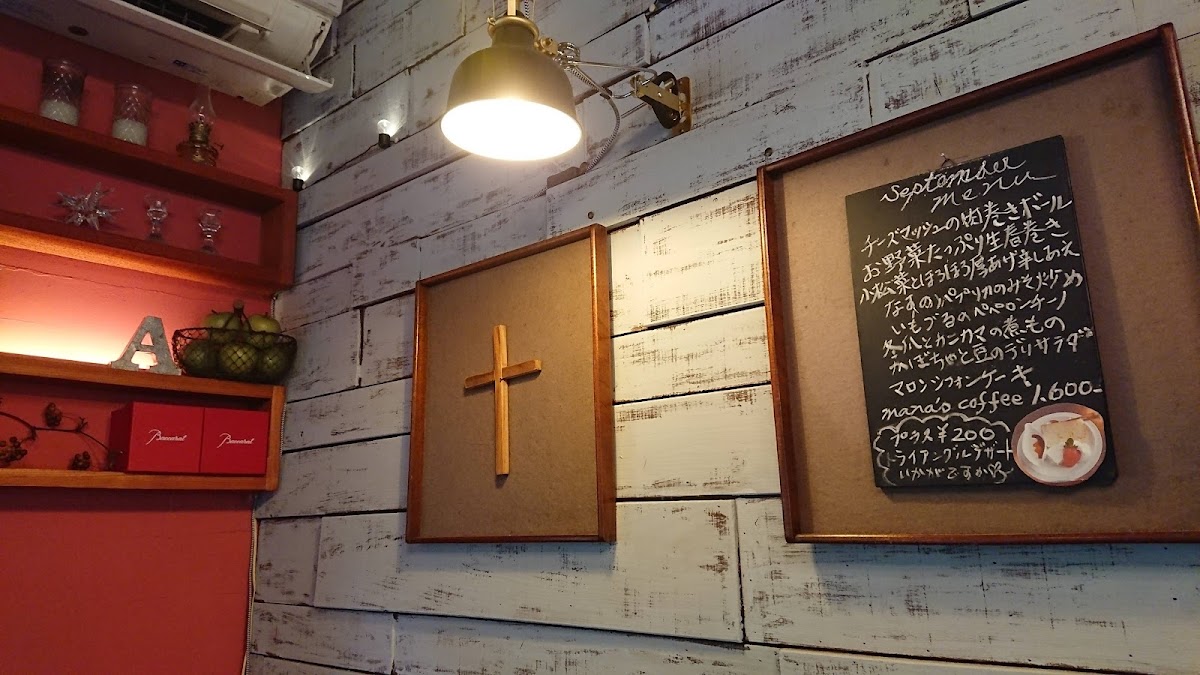 A
Baccarat
Baccarat
September
menu
チーズマッシュの肉巻きボール
お野菜たっぷり生春巻き
小松菜とほろほろ厚あげ辛しあえ
なすのパプリカのみそ炒め
いもづるのペペロンチーノ
冬瓜とカニカマの煮もの
かぼちゃと豆のデリサラダ
マロンシフォンケーキ
mana's coffee 1,600-
プラス¥200
トライアングルデザート
いかがですか